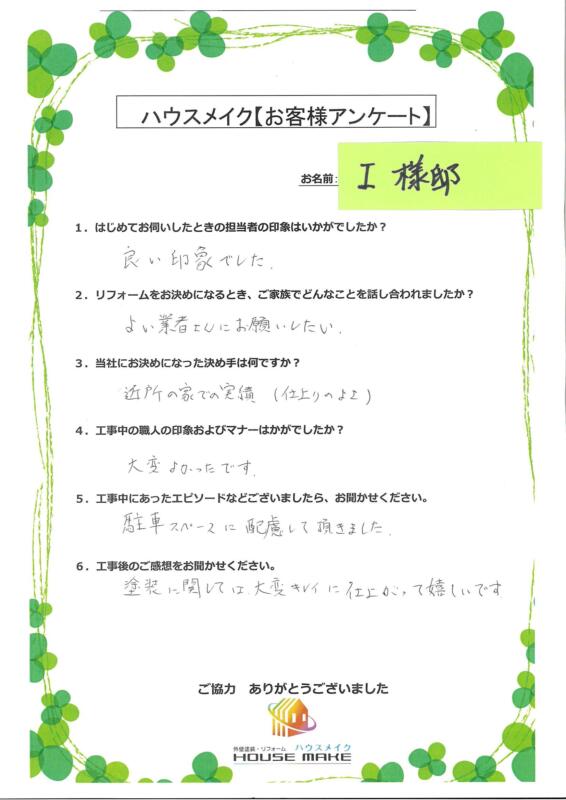 ハウスメイク【お客様アンケート】
お名前:
I 様邸
1．はじめてお伺いしたときの担当者の印象はいかがでしたか？
良い印象でした.
2．リフォームをお決めになるとき、ご家族でどんなことを話し合われましたか？
よい業者さんにお願いしたい.
3．当社にお決めになった決め手は何ですか？
近所の家での実績 (仕上りのよさ)
4．工事中の職人の印象およびマナーはかがでしたか？
大変よかったです.
5．工事中にあったエピソードなどございましたら、お聞かせください。
駐車スペースに配慮して頂きました.
6．工事後のご感想をお聞かせください。
塗装に関しては、大変キレイに仕上がって嬉しいです
ご協力 ありがとうございました
外壁塗装・リフォーム ハウスメイク
HOUSE MAKE